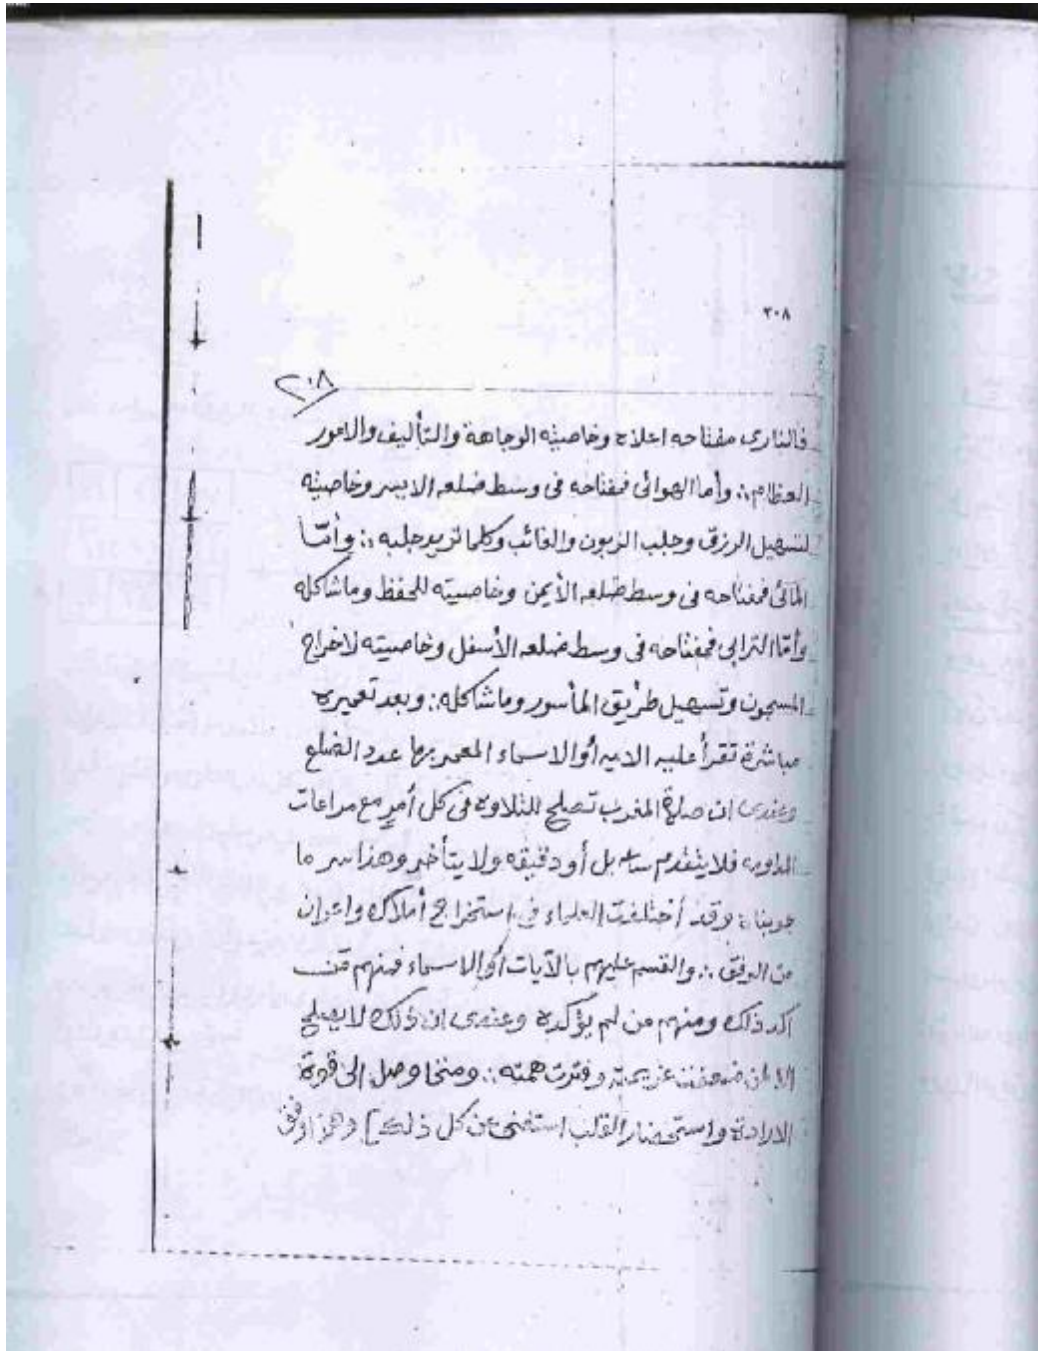 ٢٠٨
٢٠٨
فالنارى مفتاحه اعلاه وخاصيته الوجاهة والتأليف والامور
العظام ∴ وأما الهوائى فمفتاحه فى وسط ضلعه الايسر وخاصيته
لتسهيل الرزق وجلب الزبون والغائب وكلما تريد جلبه ∴ وأمّا
المائى فمفتاحه فى وسط ضلعه الأيمن وخاصيته للحفظ وماشاكله
وأمّا الترابى فمفتاحه فى وسط ضلعه الأسفل وخاصيته لاخراج
المسجون وتسهيل طريق المأسور وماشاكله ∴ وبعد تعميره
مباشرة تقرأ عليه الايه أو الاسماء المعمر بها عدد الضلع
وعندى ان صلاة المغرب تصلح للتلاوه فى كل أمرٍ مع مراعات
المداومه فلا يتقدم ساعه بل أو دقيقه ولا يتأخر وهذا سر ما
جربناه وقد أختلفت العلماء فى إستخراج أملاك واعوان
من الوفق ∴ والقسم عليهم بالآيات أو الاسماء فمنهم من
اكد ذلك ومنهم من لم يؤكده وعندى ان ذلك لا يصلح
الا لمن ضعفت عزيمته وفترت همته ∴ ومتما وصل الى قوة
الارادة واستحضار القلب استغنى عن كل ذلك] وهذا وفق